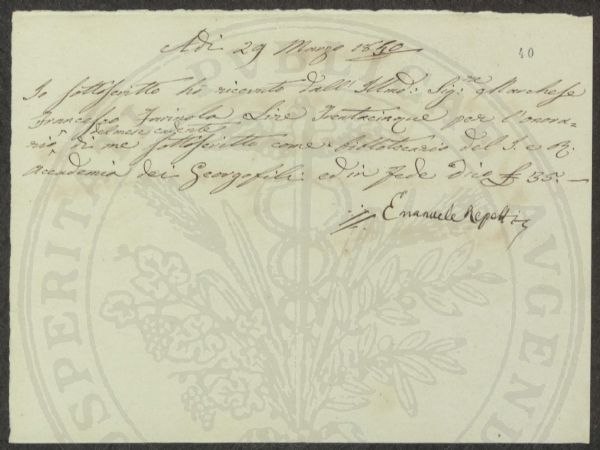 40
Adi 29 Marzo 1840
Io sottoscritto ho ricevuto dall' Illmo: Sig:re Marchese
Francesco Farinola Lire Trentacinque per l'onora-
del mese cadente
rio, di me sottoscritto come Bibliotecario del I. e R.
Accademia dei Georgofili ed in fede dico £ 35. —
Emanuele Repetti
PROSPERITATI PUBLICAE AUGENDAE